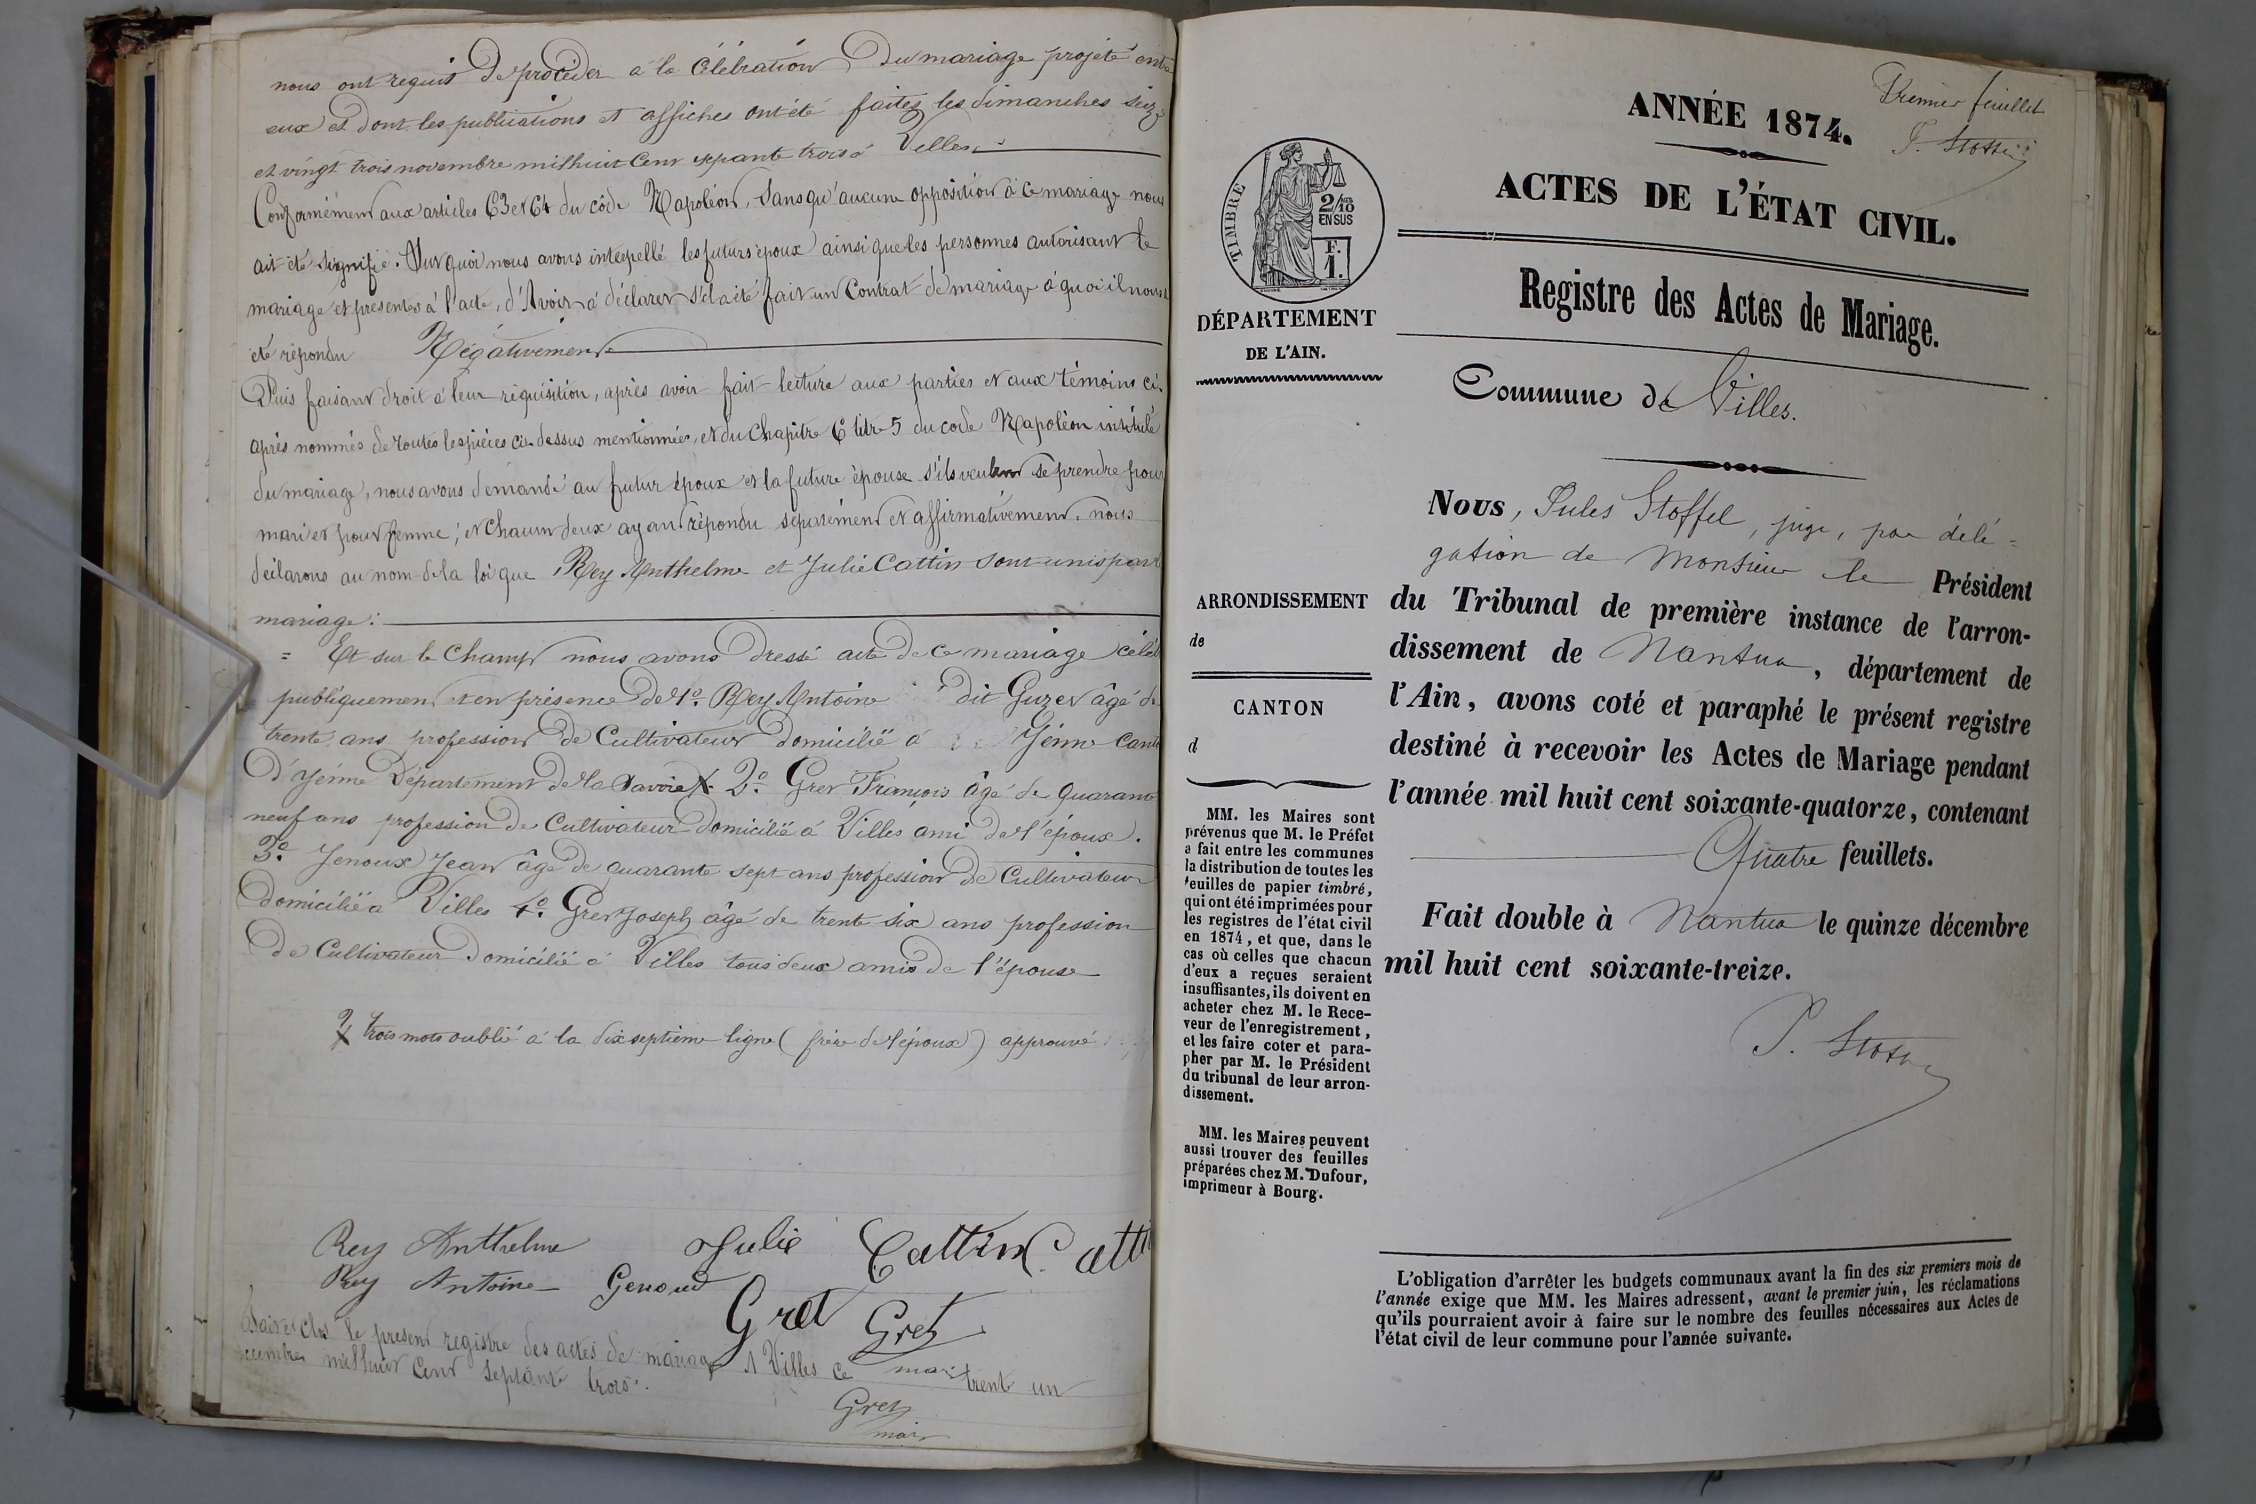 nous ont requis de procéder à la célébration du mariage projeté entre
eux et dont les publications et affiches ont été faites les dimanches seize
et vingt trois novembre mil huit cent septante trois à Villes
Conformément aux articles 63 et 64 du côde Napoléon, sans qu'aucune opposition à ce mariage nous
ait été signifié. Sur quoi nous avons interpellé les futurs époux ainsi que les personnes autorisant le
mariage et présentes à l'acte, d'Avoir à déclarer s'il a été fait un Contrat de mariage à quoi il nous a
été répondu Négativement
Puis faisant droit à leur réquisition, après avoir fait lecture aux parties et aux témoins ci-
après nommés de toutes les pièces ci-dessus mentionnées, et du chapitre 6 titre 5 du code Napoléon intitulé
du mariage, nous avons demandé au futur époux et la future épouse s'ils veulent se prendre pour
mari et pour femme; et chacun deux ayant répondu séparément et affirmativement, nous
déclarons au nom de la loi que Rey Anthelme et Julie Cattin sont unis par
mariage:
= Et sur le champ nous avons dressé acte de ce mariage célébré
publiquement et en présence de 1º. Rey Antoine dit Guzet âgé de
trente ans profession de Cultivateur domicilié à Yénne canton
d'yénne Département de la Savoie X. 2º. Gret François âgé de quarante
neuf ans profession de Cultivateur domicilié à Villes ami de l'époux.
3º. Jenoux Jean âgé de quarante sept ans profession de Cultivateur
domicilié à Villes 4º. Gret Joseph âgé de trente six ans profession
de Cultivateur domicilié à Villes tous deux amis de l'épouse
X trois mots oublié à la dix septième ligne (frère de l'époux) approuvé
Rey Anthelme Julie Cattin C. atti
Rey Antoine Genoud
Gret Gret
maire
Fait et clos le présent registre des actes de mariage A Villes ce trent un
décembre mil huit Cent septante trois.
Gret
maire
Premier feuillet
ANNÉE 1874.
J. Stoffel
ACTES DE L'ÉTAT CIVIL.
TIMBRE
2/10
EN SUS
F.
1.
Registre des Actes de Mariage.
DÉPARTEMENT
DE L'AIN.
Commune de Villes.
Nous, Jules Stoffel, juge, par délé-
gation de Monsieur le Président
du Tribunal de première instance de l'arron-
dissement de Nantua, département de
l'Ain, avons coté et paraphé le présent registre
destiné à recevoir les Actes de Mariage pendant
l'année mil huit cent soixante-quatorze, contenant
Quatre feuillets.
Fait double à Nantua le quinze décembre
mil huit cent soixante-treize.
J. Stoffel
ARRONDISSEMENT
de
CANTON
d
MM. les Maires sont
prévenus que M. le Préfet
a fait entre les communes
la distribution de toutes les
feuilles de papier timbré,
qui ont été imprimées pour
les registres de l'état civil
en 1874, et que, dans le
cas où celles que chacun
d'eux a reçues seraient
insuffisantes, ils doivent en
acheter chez M. le Rece-
veur de l'enregistrement,
et les faire coter et para-
pher par M. le Président
du tribunal de leur arron-
dissement.
MM. les Maires peuvent
aussi trouver des feuilles
préparées chez M. Dufour,
imprimeur à Bourg.
L'obligation d'arrêter les budgets communaux avant la fin des six premiers mois de
l'année exige que MM. les Maires adressent, avant le premier juin, les réclamations
qu'ils pourraient avoir à faire sur le nombre des feuilles nécessaires aux Actes de
l'état civil de leur commune pour l'année suivante.